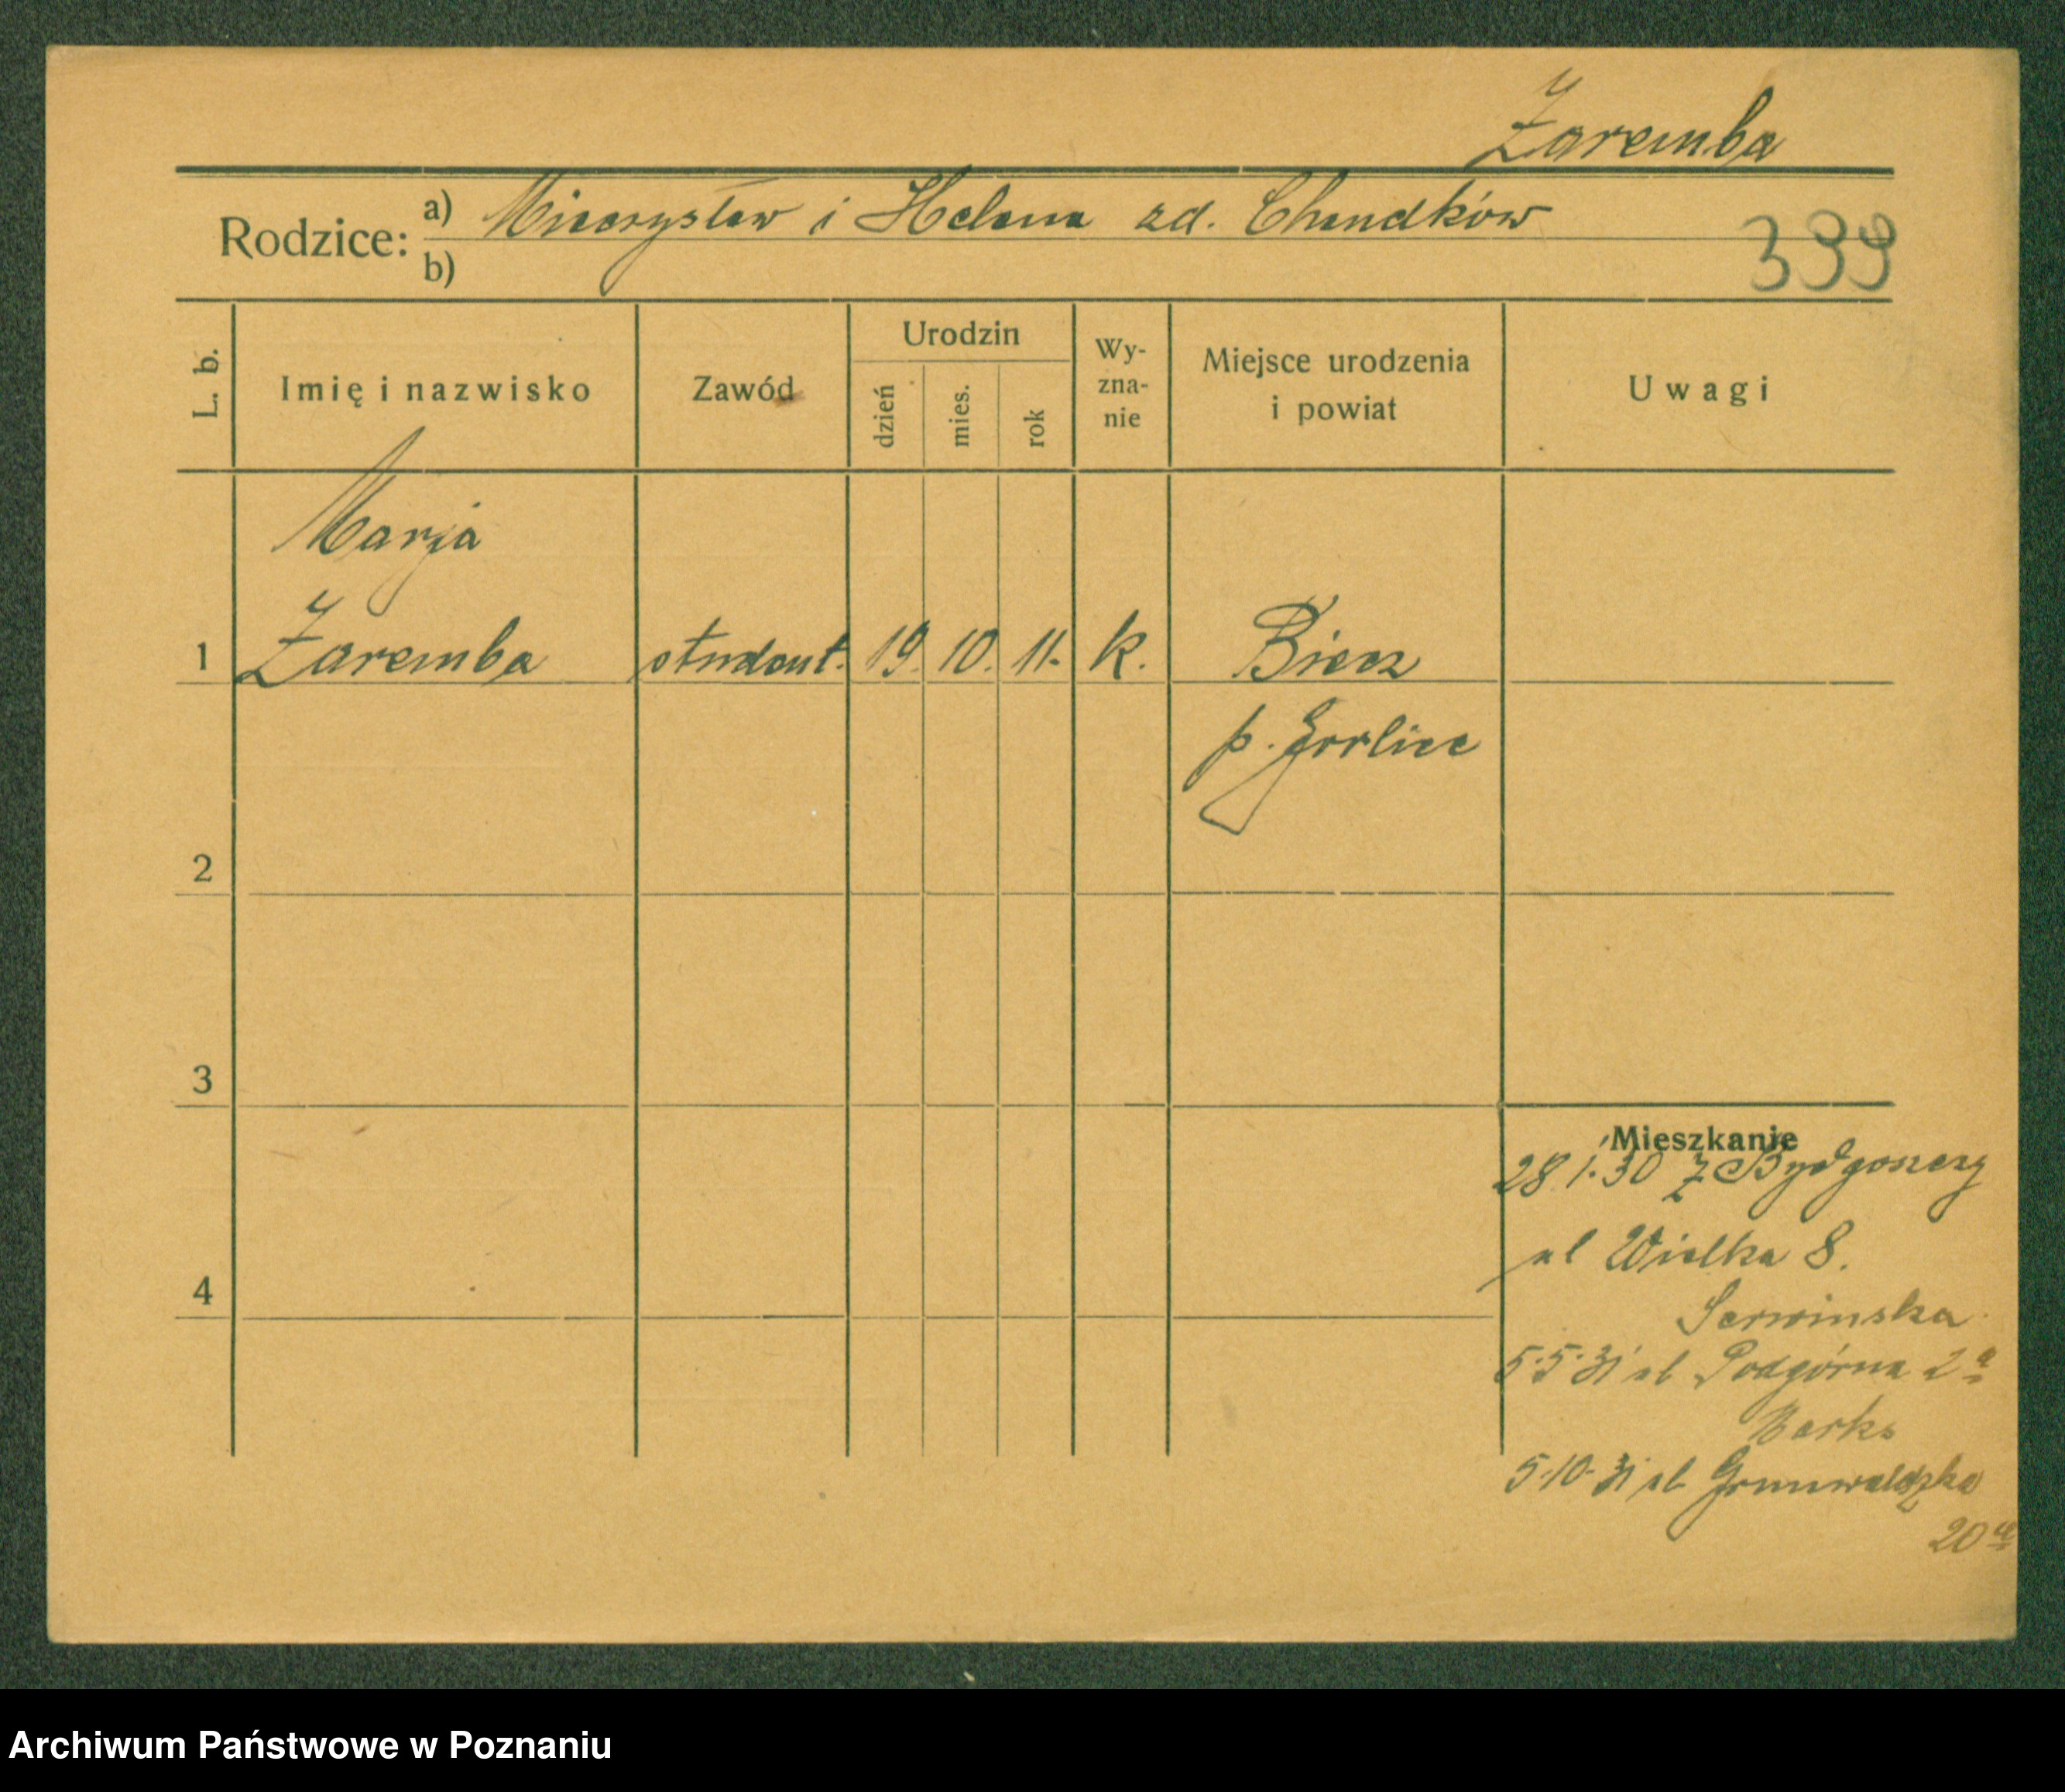 Zaremba
Rodzice: a) Mieczysław i Helena zd. Chendków
b)
399
L. b.
Imię i nazwisko
Zawód
Urodzin
dzień
mies.
rok
Wy-
zna-
nie
Miejsce urodzenia
i powiat
Uwagi
Marja
1 Zaremba student. 19. 10. 11. k. Biecz
p. Gorlice
2
3
4
Mieszkanie
28.1.30 z Bydgoszczy
ul Wielka 8.
Serwinska
5.5.31 ul Podgórna 2a
5.10.31 ul Grunwaldzka
20
Archiwum Państwowe w Poznaniu